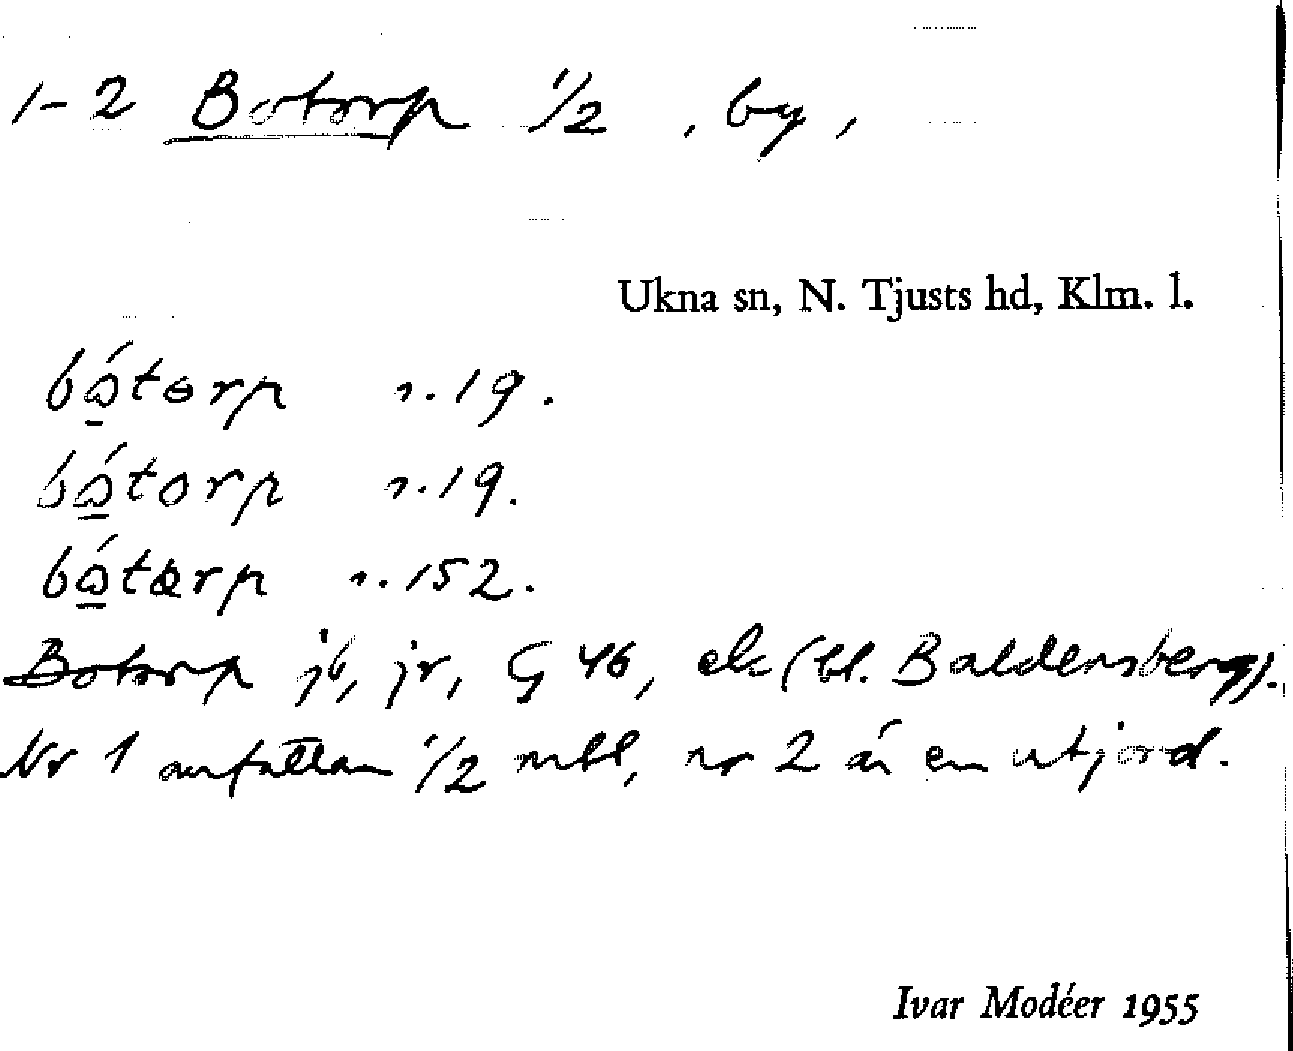 1-2 Botorp 1/2 , by ,
Ukna sn, N. Tjusts hd, Klm. l.
bǻ̲tɵrp r. 19.
bǻ̲torp r. 19.
bǻ̲tærp r. 152.
Botorp jb, jr, G 46, ek (bl. Baldersberg).
Nr 1 omfattar 1/2 mtl, nr 2 är en utjord.
Ivar Modéer 1955